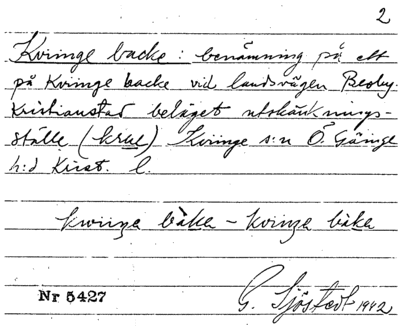 2
Kviinge backe: benämning på ett
på Kviinge backe vid landsvägen Broby-
Kristianstad beläget utskänknings-
ställe (krog) Kviinge s:n Ö. Göinge
h:d Krist. l.
Nr 5427
G. Sjöstedt 1942